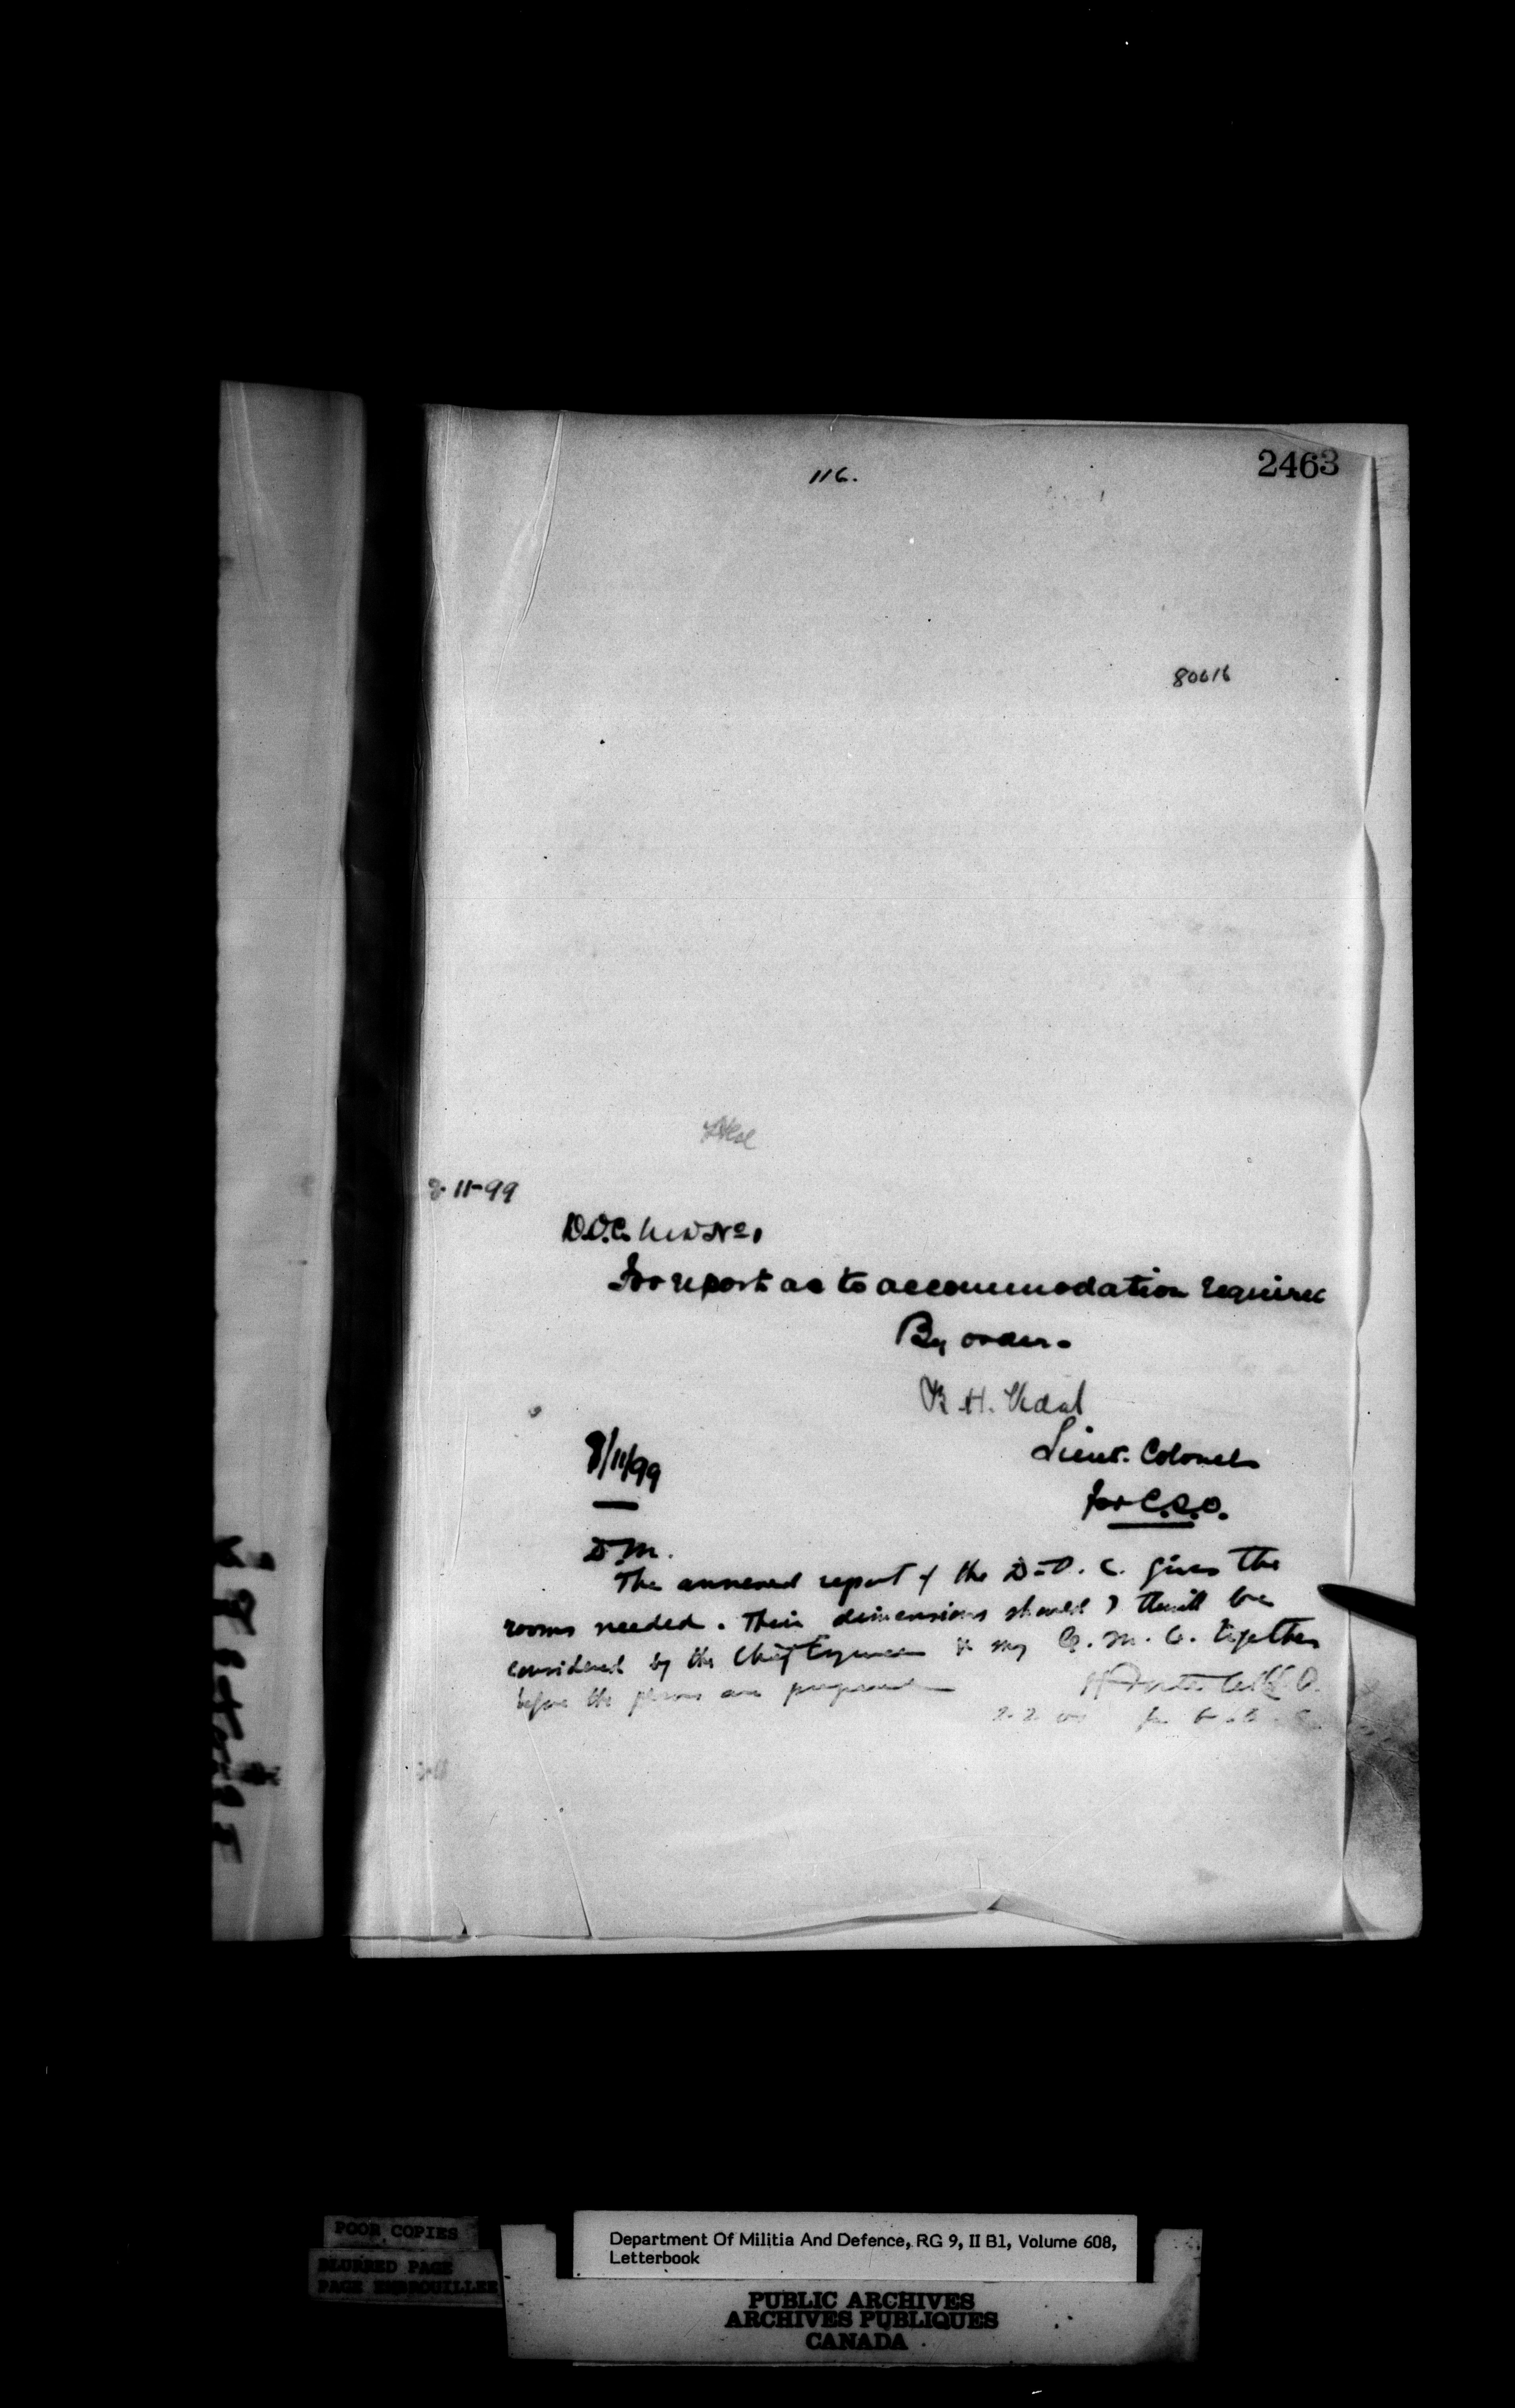 116.
2463
80616
8-11-99
D.O.C. M.D. No 1
For report as to accommodation required
By order.
B. H. Vidal
Lieut. Colonel
8/11/99
for C.S.O.
D.M.
The annexed report of the D.O.C. gives the
rooms needed. Their dimensions should I think be
considered by the Chief Engineer & my Q.M.G. together
before the plans are prepared
Department Of Militia And Defence, RG 9, II B1, Volume 608,
Letterbook
POOR COPIES
BLURRED PAGE
PAGE EMBROUILLEE
PUBLIC ARCHIVES
ARCHIVES PUBLIQUES
CANADA